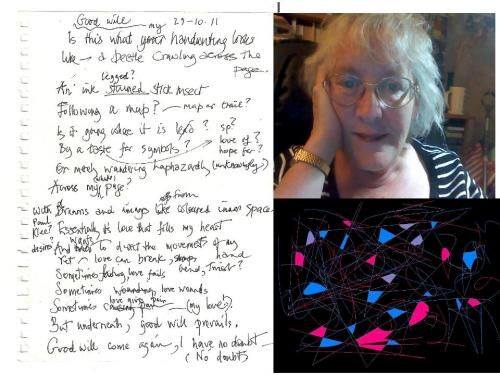 Good will — my 29-10.11
Is this what your handwriting looks
like — a beetle crawling across the
page.
legged?
An' ink stained stick insect
Following a map? — map or trail?
Is it going where it is led? sp?
By a taste for symbols? → love of?
hope for?
Or merely wandering haphazardly (unknowingly?)
Across my page?
from
With Brawns and inings like coloured inner space
Paul
Klee? Essentially its love that fills my heart
desires? wants
And to direct the movement of my
Yet — love can break, hand
Sometimes love fails bend, twist?
Sometimes wounding, love wounds
love gives pain
Sometimes (my loves)?
But underneath, good will prevails.
Good will come again, I have no doubt —
(No doubts)